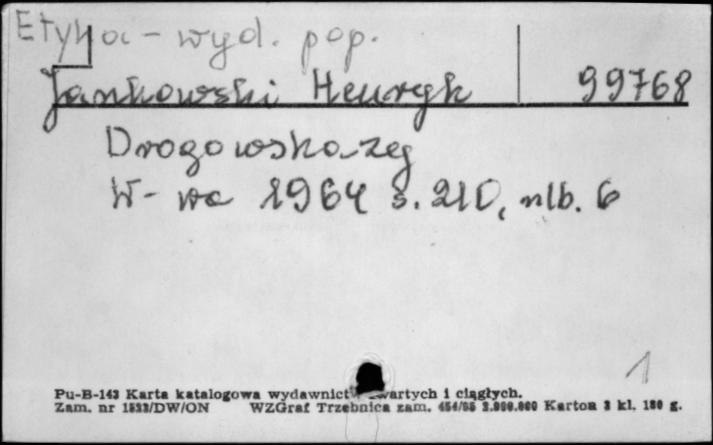 Etyka - wyd. pop.
Jankowski Henryk 99768
Drogowskazy
W-wa 1964 s. 210, nlb. 6
1
Pu-B-143 Karta katalogowa wydawnictw zwartych i ciągłych.
Zam. nr 1533/DW/ON WZGraf Trzebnica zam. 454/55 2.000.000 Karton 3 kl. 180 g.